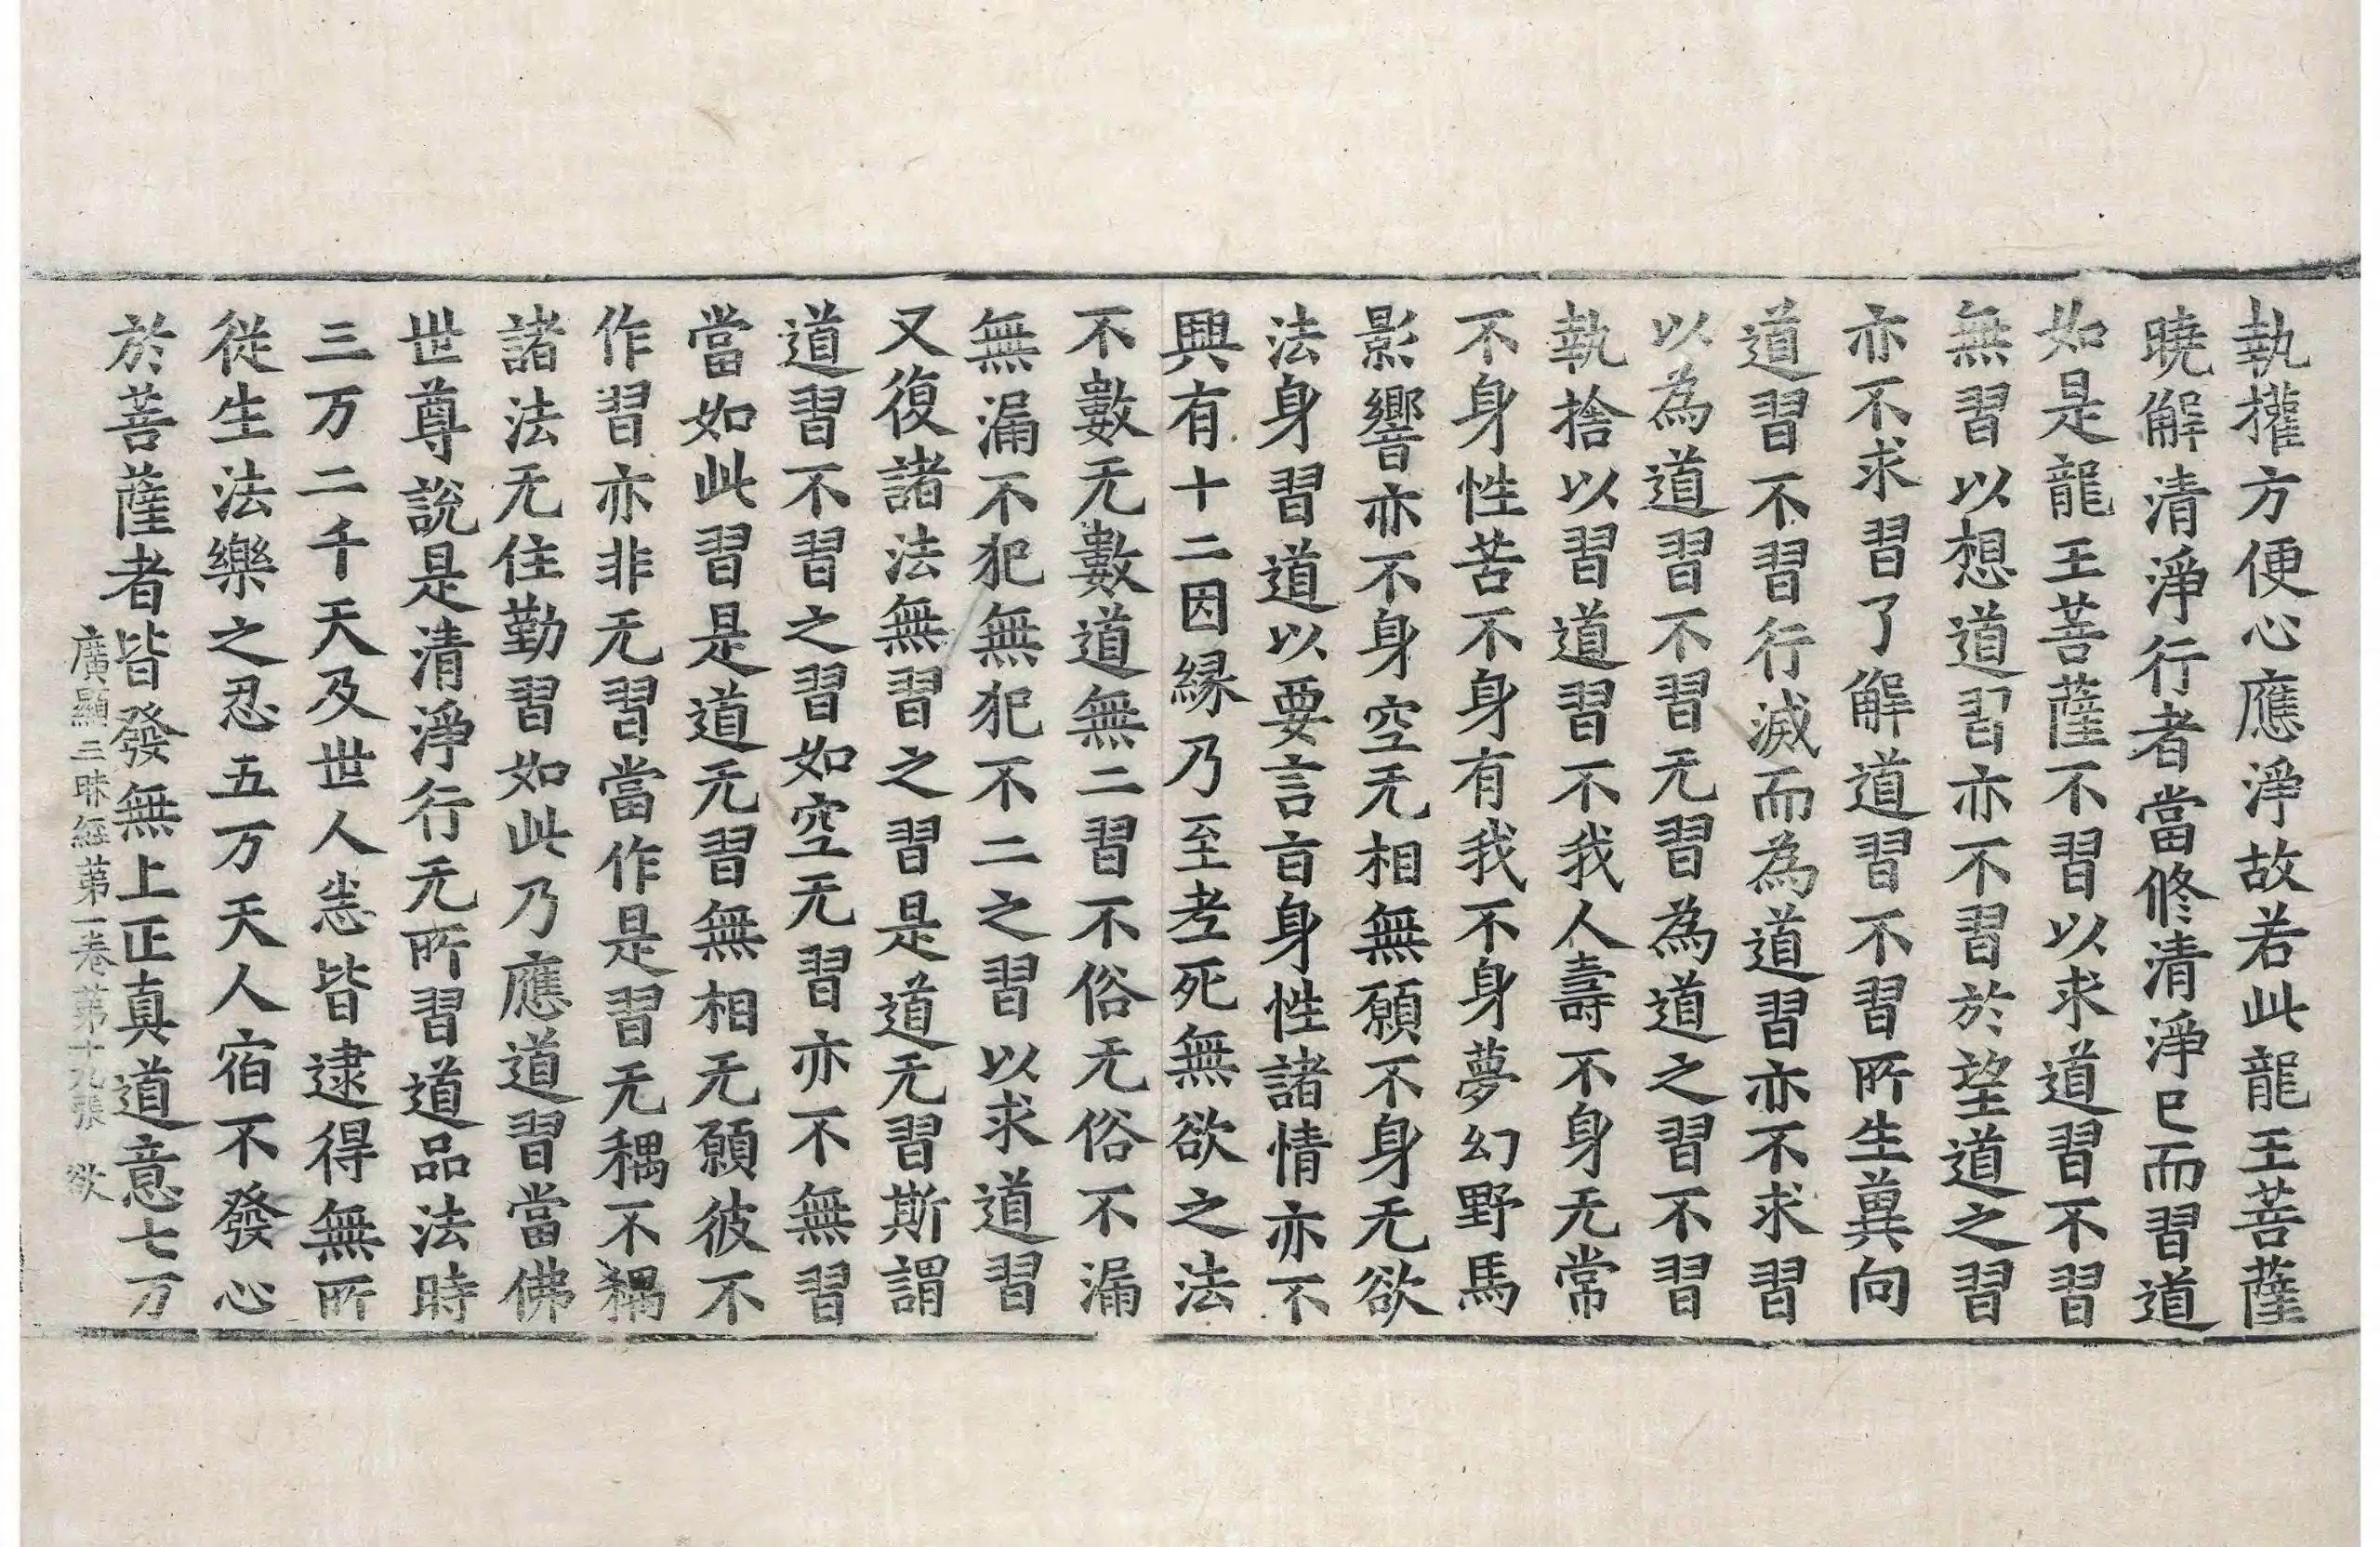 執權方便心應淨故若此龍王菩薩
曉解清淨行者當修清淨已而習道
如是龍王菩薩不習以求道習不習
無習以想道習亦不習於望道之習
亦不求習了解道習不習所生冀向
道習不習行滅而為道習亦不求習
以為道習不習无習為道之習不習
執捨以習道習不我人壽不身无常
不身性苦不身有我不身夢幻野馬
影響亦不身空无相無願不身无欲
法身習道以要言盲身性諸情亦不
興有十二因縁乃至老死無欲之法
不數无數道無二習不俗无俗不漏
無漏不犯無犯不二之習以求道習
又復諸法無習之習是道无習斯謂
道習不習之習如空无習亦不無習
當如此習是道无習無相无願彼不
作習亦非无習當作是習无稱不稱
諸法无住勤習如此乃應道習當佛
世尊說是清淨行无所習道品法時
三万二千天及世人悉皆逮得無所
從生法樂之忍五万天人宿不發心
於菩薩者皆發無上正真道意七万
廣顯三昧經第一卷第十九張 欲